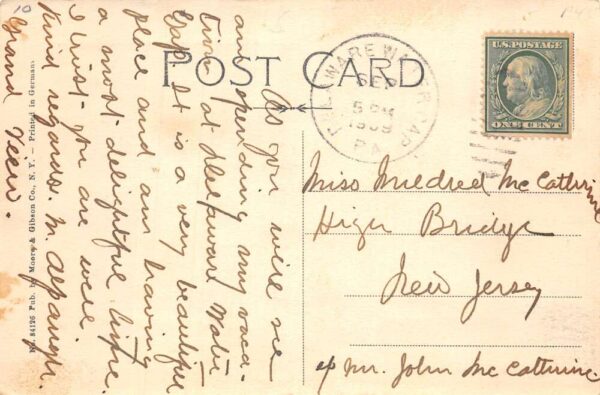 10
POST CARD
DELAWARE WATER GAP
SEP
5 PM
1909
PA.
U.S. POSTAGE
ONE CENT
As you will see
am spending my vaca-
tion at Delaware Water
Gap. It is a very beautiful
place and am having
a most delightful time.
I trust you are well.
Kind regards. M. Alpaugh.
Grand View.
Miss Mildred McCathrine
High Bridge
New Jersey
c/o Mr. John McCathrine
No. 84126 Pub. by Moore & Gibson Co., N. Y. - Printed in Germany